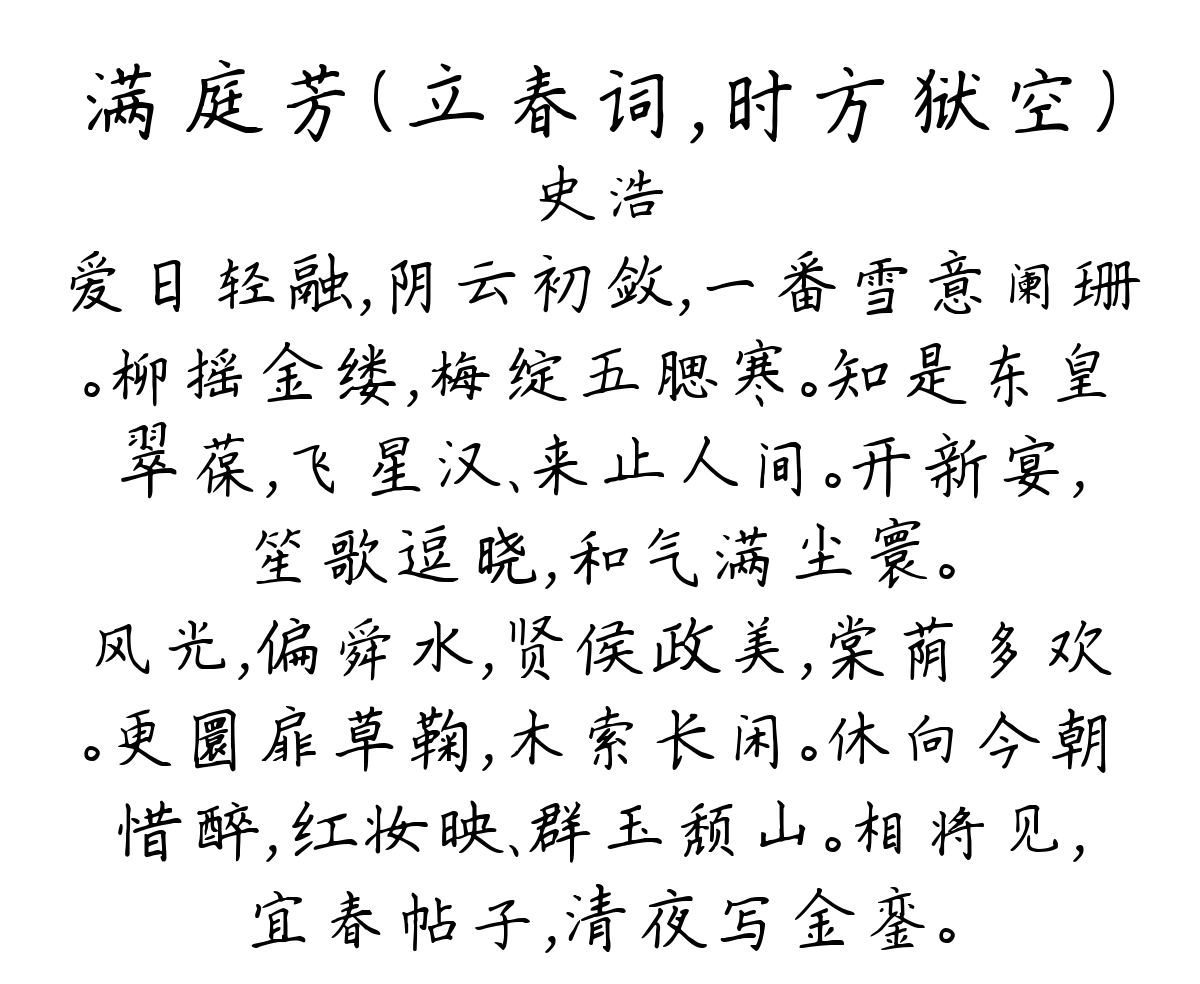 满庭芳(立春词,时方狱空)
史浩
爱日轻融,阴云初敛,一番雪意阑珊
。柳摇金缕,梅绽五腮寒。知是东皇
翠葆,飞星汉、来止人间。开新宴,
笙歌逗晓,和气满尘寰。
风光,偏舜水,贤侯政美,棠荫多欢
。更圜扉草鞠,木索长闲。休向今朝
惜醉,红妆映、群玉颓山。相将见,
宜春帖子,清夜写金銮。